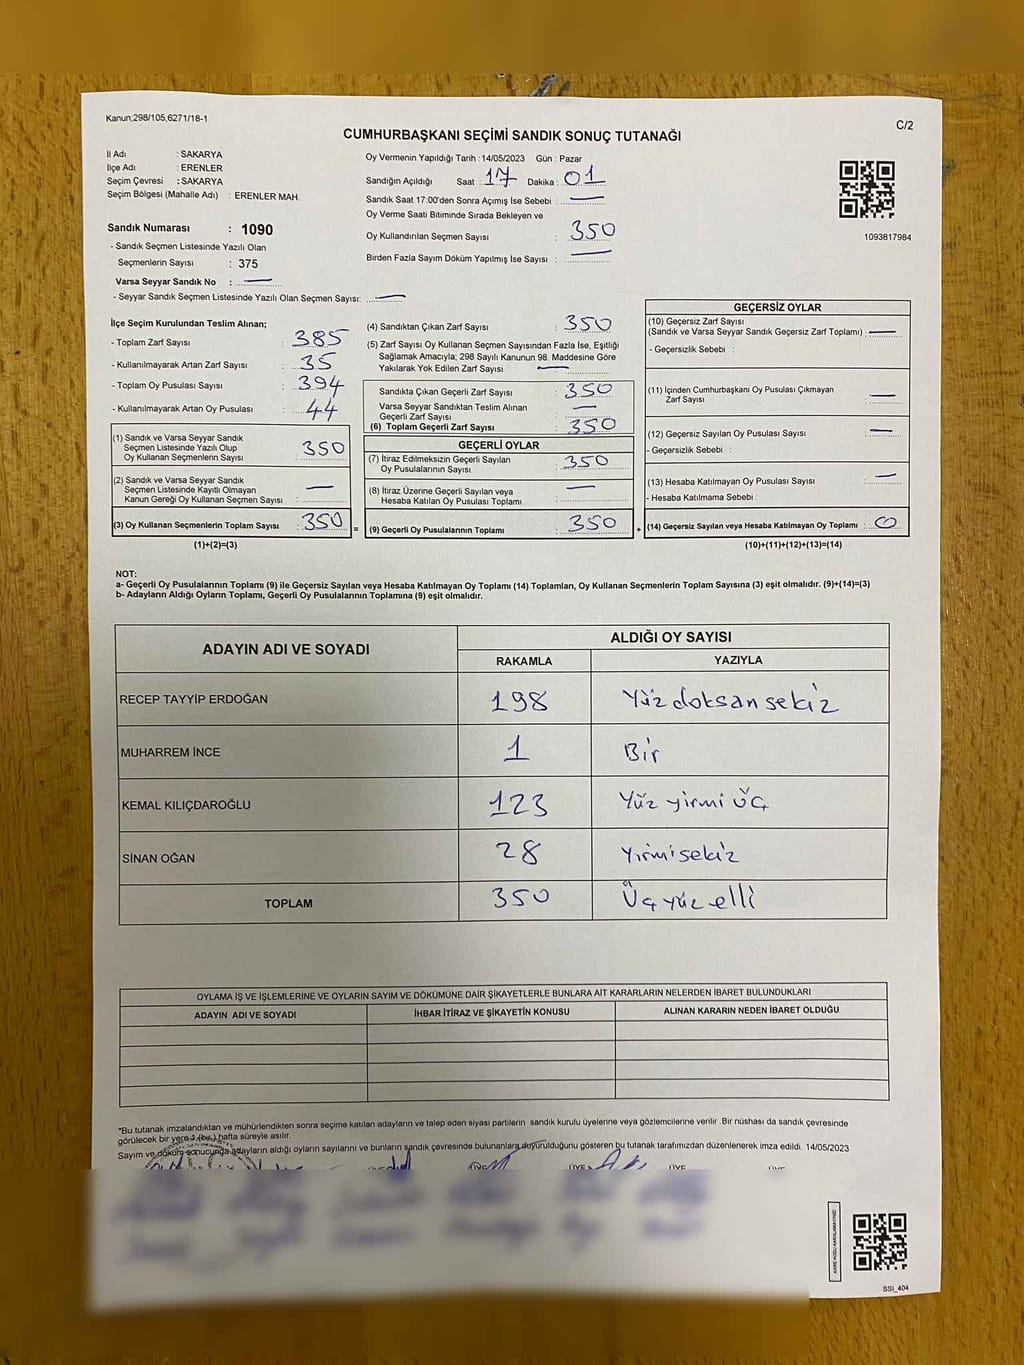 Kanun;298/105,6271/18-1
C/2
CUMHURBAŞKANI SEÇİMİ SANDIK SONUÇ TUTANAĞI
İl Adı : SAKARYA
İlçe Adı : ERENLER
Seçim Çevresi : SAKARYA
Seçim Bölgesi (Mahalle Adı) : ERENLER MAH.
Sandık Numarası : 1090
- Sandık Seçmen Listesinde Yazılı Olan
Seçmenlerin Sayısı : 375
Varsa Seyyar Sandık No : —
- Seyyar Sandık Seçmen Listesinde Yazılı Olan Seçmen Sayısı: —
Oy Vermenin Yapıldığı Tarih : 14/05/2023 Gün : Pazar
Sandığın Açıldığı Saat : 17 Dakika : 01
Sandık Saat 17:00'den Sonra Açımış İse Sebebi : —
Oy Verme Saati Bitiminde Sırada Bekleyen ve
Oy Kullandırılan Seçmen Sayısı : 350
Birden Fazla Sayım Döküm Yapılmış İse Sayısı : —
1093817984
İlçe Seçim Kurulundan Teslim Alınan;
- Toplam Zarf Sayısı : 385
- Kullanılmayarak Artan Zarf Sayısı : 35
- Toplam Oy Pusulası Sayısı : 394
- Kullanılmayarak Artan Oy Pusulası : 44
(1) Sandık ve Varsa Seyyar Sandık
Seçmen Listesinde Yazılı Olup
Oy Kullanan Seçmenlerin Sayısı : 350
(2) Sandık ve Varsa Seyyar Sandık
Seçmen Listesinde Kayıtlı Olmayan
Kanun Gereği Oy Kullanan Seçmen Sayısı : —
(3) Oy Kullanan Seçmenlerin Toplam Sayısı : 350
(1)+(2)=(3)
(4) Sandıktan Çıkan Zarf Sayısı : 350
(5) Zarf Sayısı Oy Kullanan Seçmen Sayısından Fazla İse, Eşitliği
Sağlamak Amacıyla; 298 Sayılı Kanunun 98. Maddesine Göre
Yakılarak Yok Edilen Zarf Sayısı : —
Sandıkta Çıkan Geçerli Zarf Sayısı : 350
Varsa Seyyar Sandıktan Teslim Alınan
Geçerli Zarf Sayısı : —
(6) Toplam Geçerli Zarf Sayısı : 350
GEÇERLİ OYLAR
(7) İtiraz Edilmeksizin Geçerli Sayılan
Oy Pusulalarının Sayısı : 350
(8) İtiraz Üzerine Geçerli Sayılan veya
Hesaba Katılan Oy Pusulası Toplamı : —
(9) Geçerli Oy Pusulalarının Toplamı : 350
GEÇERSİZ OYLAR
(10) Geçersiz Zarf Sayısı
(Sandık ve Varsa Seyyar Sandık Geçersiz Zarf Toplamı) : —
- Geçersizlik Sebebi :
(11) İçinden Cumhurbaşkanı Oy Pusulası Çıkmayan
Zarf Sayısı : —
(12) Geçersiz Sayılan Oy Pusulası Sayısı : —
- Geçersizlik Sebebi :
(13) Hesaba Katılmayan Oy Pusulası Sayısı : —
- Hesaba Katılmama Sebebi :
(14) Geçersiz Sayılan veya Hesaba Katılmayan Oy Toplamı : 0
(10)+(11)+(12)+(13)=(14)
NOT:
a- Geçerli Oy Pusulalarının Toplamı (9) ile Geçersiz Sayılan veya Hesaba Katılmayan Oy Toplamı (14) Toplamları, Oy Kullanan Seçmenlerin Toplam Sayısına (3) eşit olmalıdır. (9)+(14)=(3)
b- Adayların Aldığı Oyların Toplamı, Geçerli Oy Pusulalarının Toplamına (9) eşit olmalıdır.
ADAYIN ADI VE SOYADI
ALDIĞI OY SAYISI
RAKAMLA YAZIYLA
RECEP TAYYİP ERDOĞAN 198 Yüz doksan sekiz
MUHARREM İNCE 1 Bir
KEMAL KILIÇDAROĞLU 123 Yüz yirmi üç
SİNAN OĞAN 28 Yirmisekiz
TOPLAM 350 Üçyüz elli
OYLAMA İŞ VE İŞLEMLERİNE VE OYLARIN SAYIM VE DÖKÜMÜNE DAİR ŞİKAYETLERLE BUNLARA AİT KARARLARIN NELERDEN İBARET BULUNDUKLARI
ADAYIN ADI VE SOYADI İHBAR İTİRAZ VE ŞİKAYETİN KONUSU ALINAN KARARIN NEDEN İBARET OLDUĞU
*Bu tutanak imzalandıktan ve mühürlendikten sonra seçime katılan adayların ve talep eden siyasi partilerin sandık kurulu üyelerine veya gözlemcilerine verilir .Bir nüshası da sandık çevresinde
görülecek bir yere 1 (bir ) hafta süreyle asılır.
Sayım ve döküm sonucunda adayların aldığı oyların sayılarını ve bunların sandık çevresinde bulunanlara duyurulduğunu gösteren bu tutanak tarafımızdan düzenlenerek imza edildi. 14/05/2023
ÜYE ÜYE ÜYE ÜYE ÜYE
KARE KODU KARALAMAYINIZ!
SSI_404